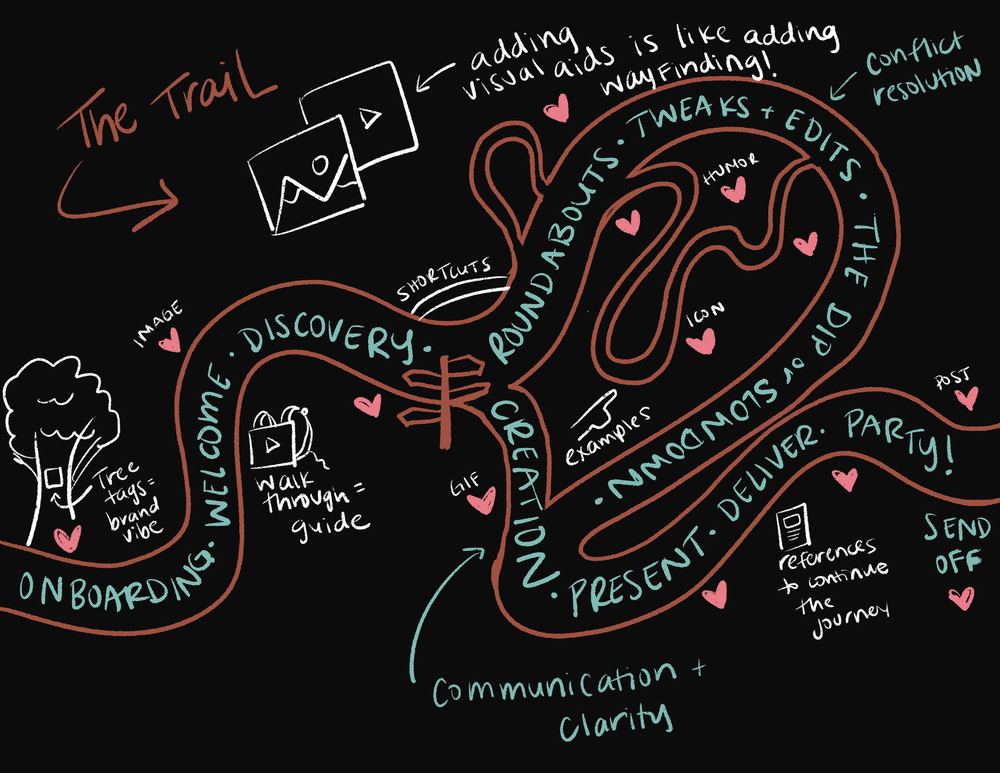 The Trail
adding
visual aids is like adding
wayfinding!
conflict
resolution
SHORTCUTS
IMAGE
HUMOR
ICON
POST
GIF
Tree
tags =
brand
vibe
walk
through =
guide
examples
ONBOARDING. WELCOME. DISCOVERY.
CREATION. PRESENT. DELIVER. PARTY!
ROUNDABOUTS. TWEAKS + EDITS. THE DIP or SLOWDOWN.
references
to continue
the
journey
SEND
OFF
Communication +
Clarity